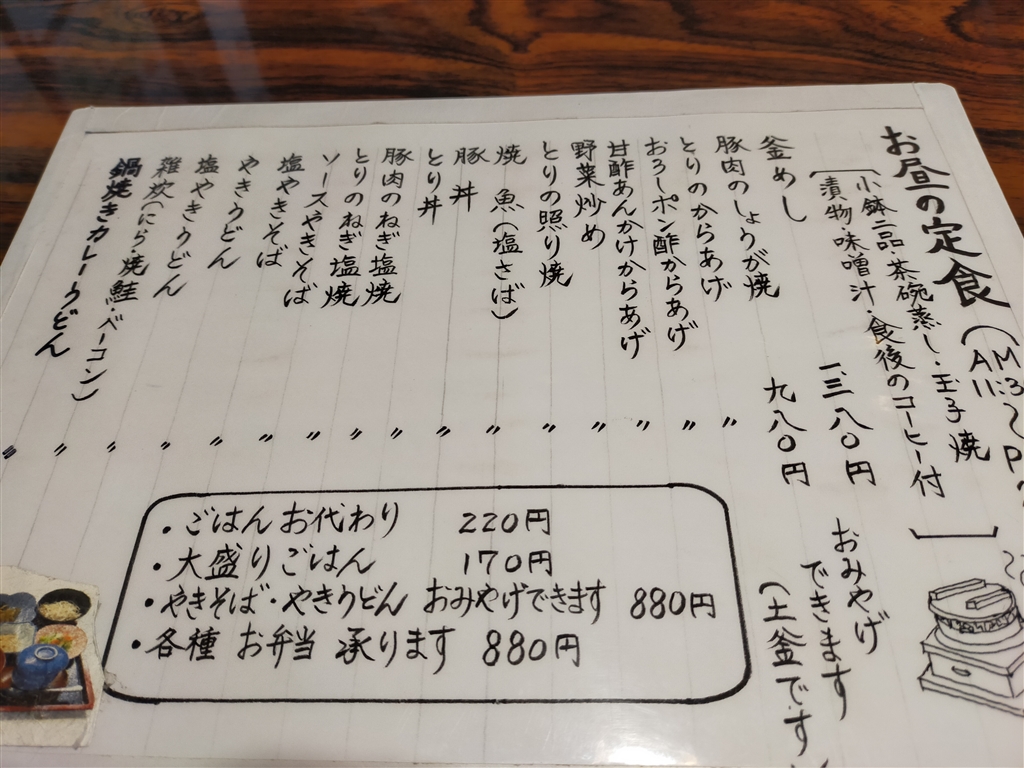 お昼の定食(AM11:3〜P
小鉢二品・茶碗蒸し・玉子焼
漬物・味噌汁・食後のコーヒー付
釜めし 一、三八〇円
おみやげ
できます
(土釜です
豚肉のしょうが焼 九八〇円
とりのからあげ 〃
おろしポン酢からあげ 〃
甘酢あんかけからあげ 〃
野菜炒め 〃
とりの照り焼 〃
焼魚(塩さば) 〃
豚丼 〃
とり丼 〃
豚肉のねぎ塩焼 〃
とりのねぎ塩焼 〃
ソースやきそば 〃
塩やきそば 〃
やきうどん 〃
塩やきうどん 〃
雑炊(にら・焼鮭・ベーコン) 〃
鍋焼きカレーうどん 〃
・ごはんお代わり 220円
・大盛りごはん 170円
・やきそば・やきうどん おみやげできます 880円
・各種 お弁当 承ります 880円